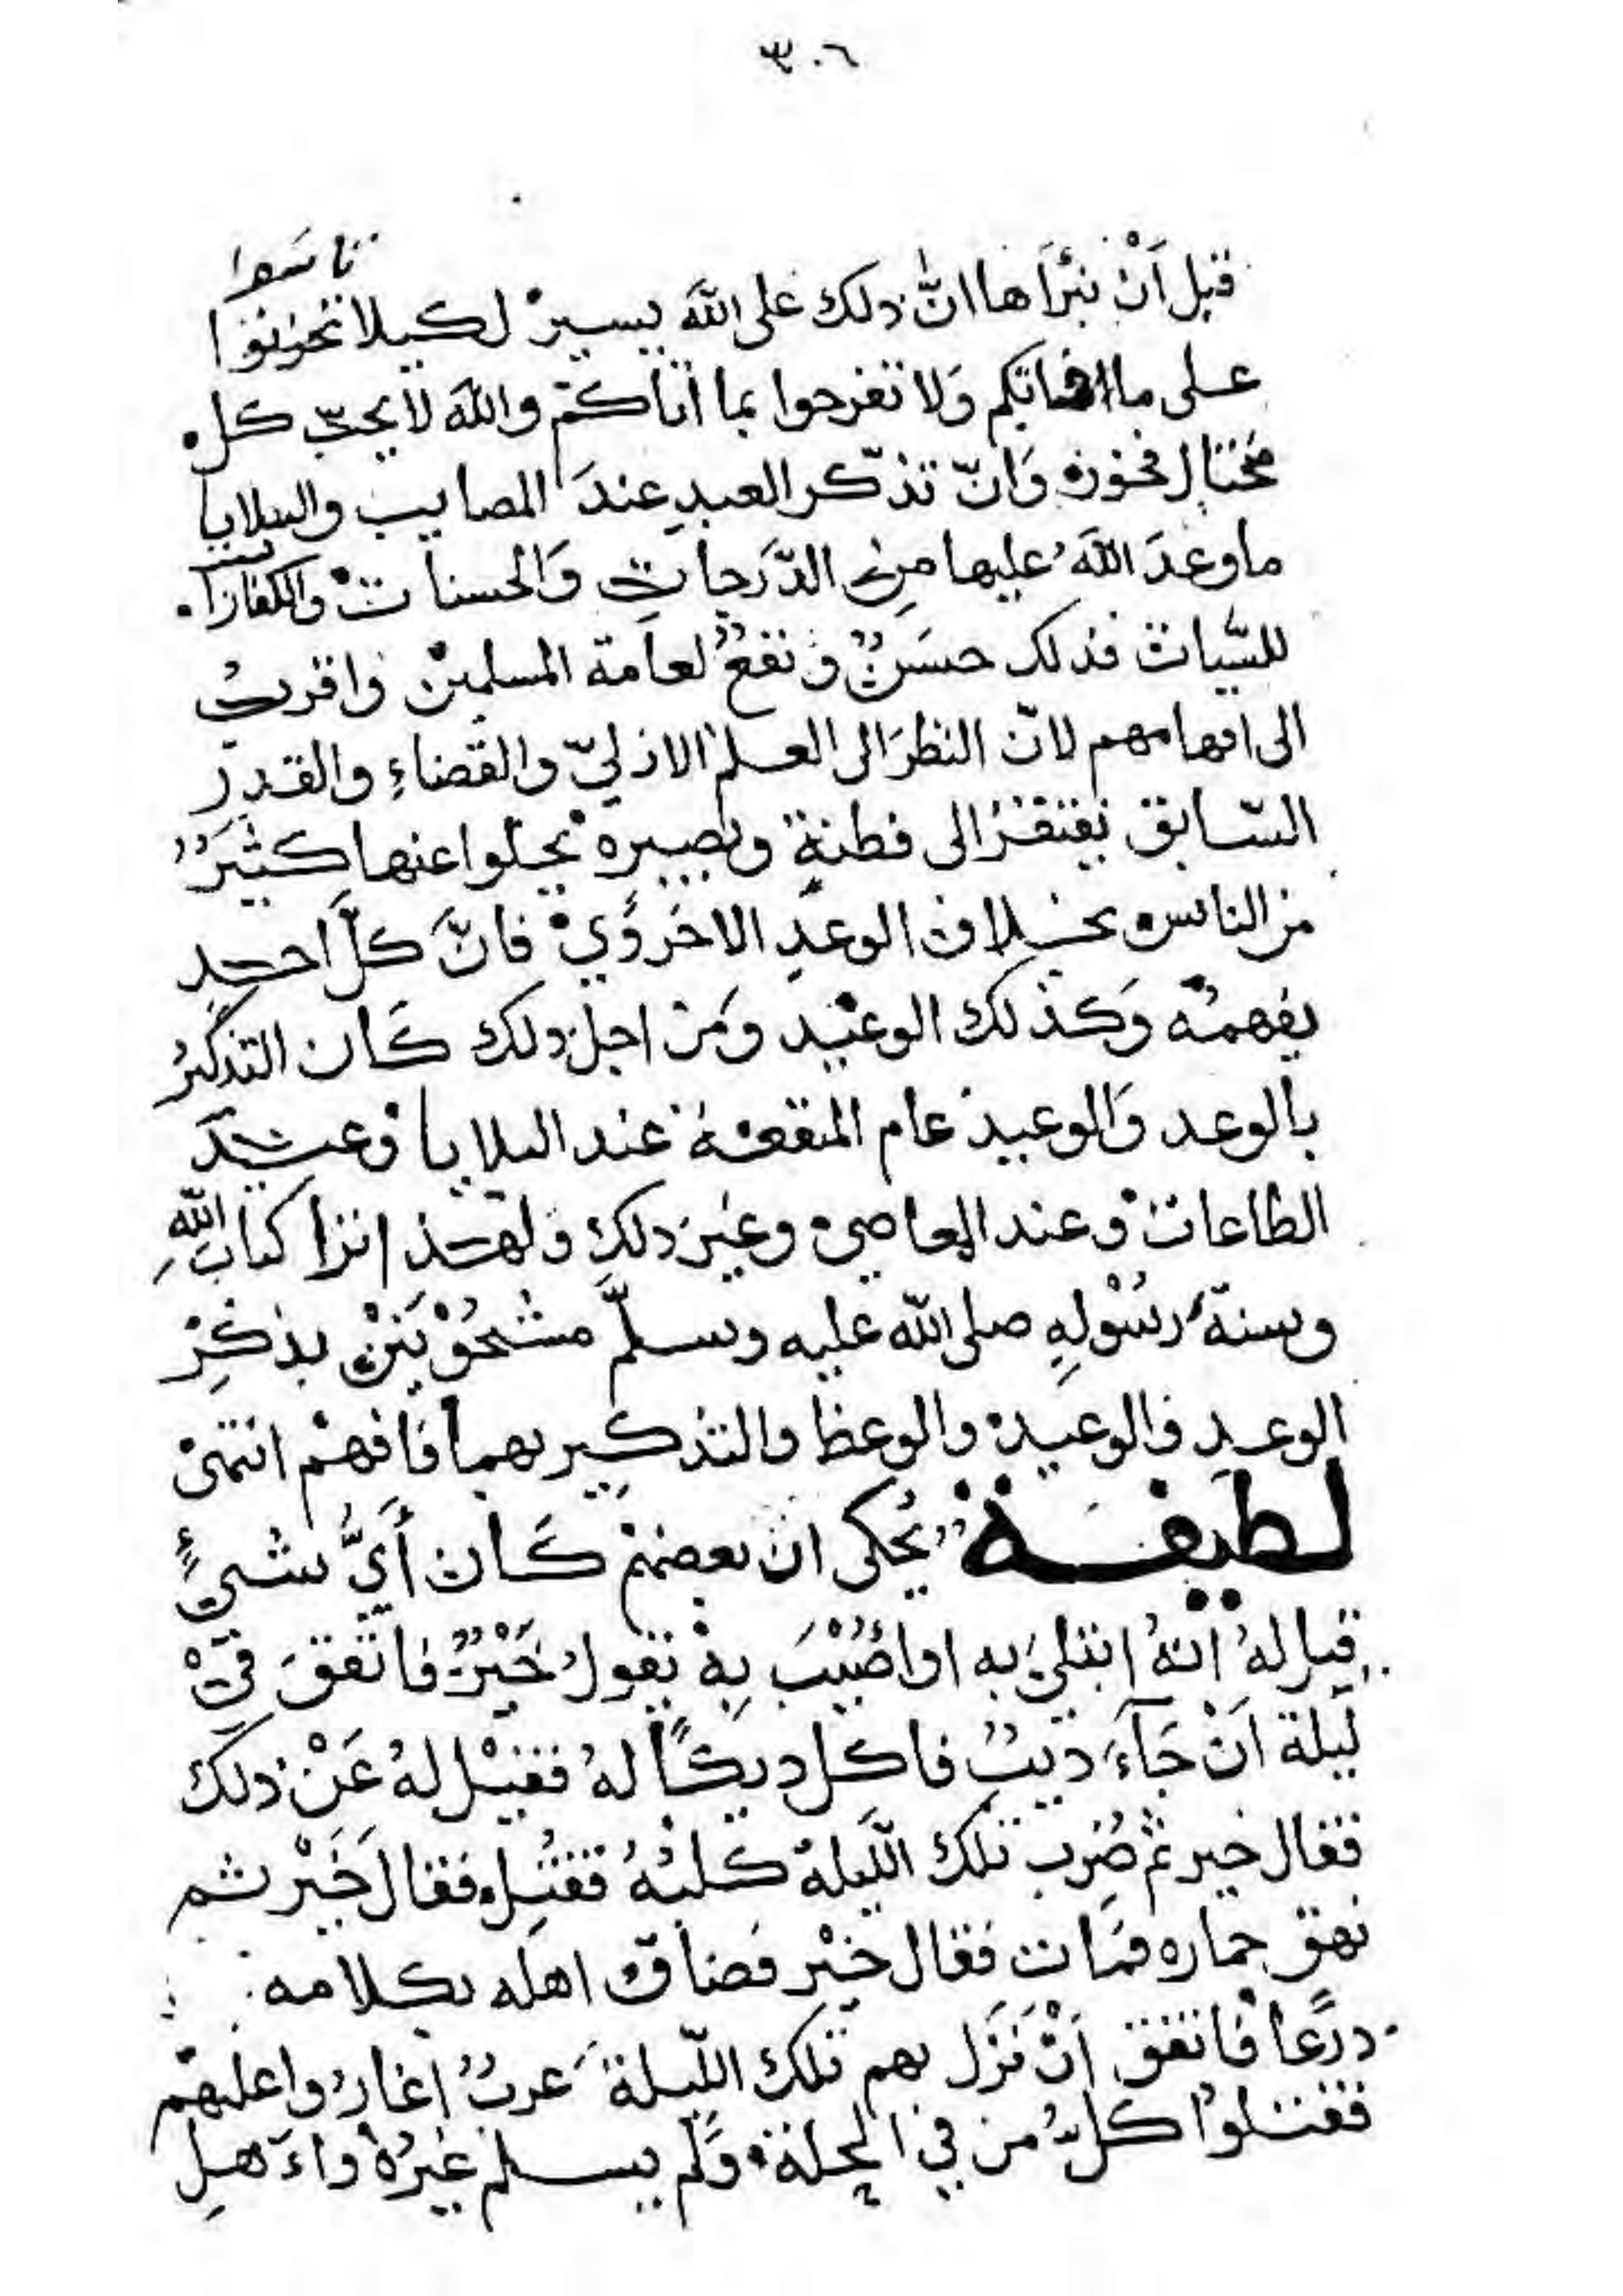 ٣٠٦
تاسوا
قبل أَنْ نبْرأَها انّ ذلك على اللّه يسيرْ لكيلا تحزنوا
على ما فاتكم وَلا تفرحوا بما اتاكمْ واللّه لا يحبّ كل
مختال فخور وَانّ تذكّر العبدِ عندَ المصايب والبلايا
ما وعدَ اللّهُ عليها مِن الدّرَجاتِ وَالحسناتْ والكفارات
للسّيات فذلك حسَنٌ ونفعٌ لعامة المسلمين واقربُ
الى افهامهم لانّ النظرَ الى العلم الازليّ والقضاءِ والقدرِ
السّابق يفتقرُ الى فطنةٍ وبصيره يخلوا عنها كثيرٌ
من الناس بخلاف الوعدِ الاخرَويْ فانّ كلَّ احدٍ
يفهمُه وَكذلك الوعيد وَمن اجل ذلك كَان التذكيرُ
بالوعد وَالوعيد عام المنفعة عند البلايا وعندَ
الطاعات وعند المعاصي وغيرَ ذلك ولهذا نرا كتاب اللّهِ
وسنةَ رسُوْلِهِ صلى اللّه عليه وسلّم مشحُوْنَيْن بذكرِ
الوعدِ والوعيد والوعظ والتذكيرِ بهما فافهمْ انتهى
لطيفة يُحكى ان بعضهم كَان أَيُّ شىءٍ
قيل لهُ انهُ ابتليَ به او اُصُيْبَ بِهْ يقولُ خَيْرٌ فاتّفقَ فيْ
لَيلة اَنْ جَآءَ ذيبٌ فاكل ديكًا لهُ فقيْل لهُ عَنْ ذلك
فقال خير ثم ضُرِب تلك اللّيلة كلبُهُ فقُتِل فقال خَيْر ثم
نهق حماره فمَات فقال خيْر فضاق اهله بكلامه
درْعًا فاتفق اَنْ نَزَل بهم تلك اللّيلة عربٌ اغارُوا عليهمْ
فقتلوُا كلّ من في الحلة وَلم يسلم غيرُهْ واَهلِ